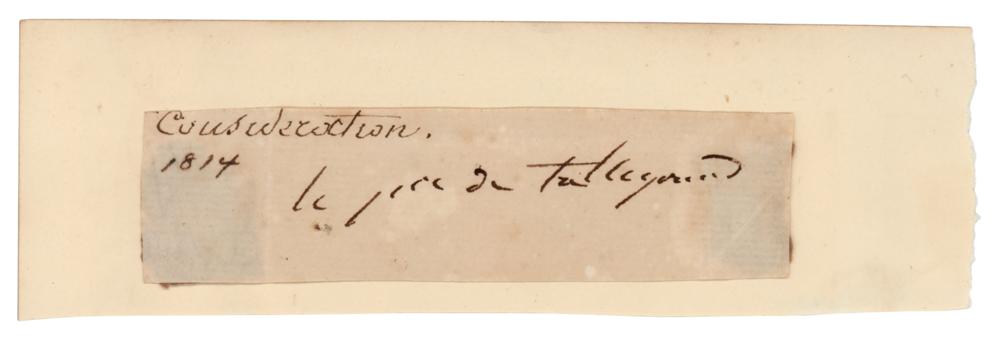 Consideration.
1814
le pce de talleyrand